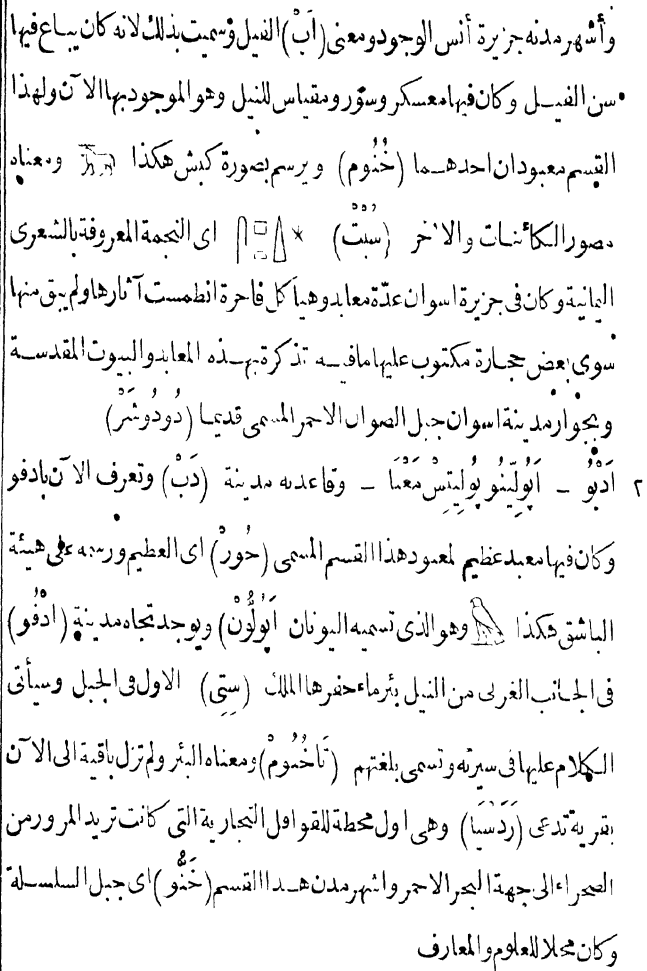 وأشهر مدنه جزيرة أنس الوجود ومعنى (اَبْ) الفيل وسميت بذلك لانه كان يباع فيها
سن الفيل وكان فيها معسكر وسور ومقياس للنيل وهو الموجود بها الآن ولهذا
القسم معبودان احدهما (خُنُوم) ويرسم بصورة كبش هكذا ومعناه
مصور الكائنات والاخر (سُبْتْ) اى النجمة المعروفة بالشعرى
اليمانية وكان فى جزيرة اسوان عدّة معابد وهياكل فاخرة انطمست آثارها ولم يبق منها
سوى بعض حجارة مكتوب عليها مافيه تذكرة بهذه المعابد والبيوت المقدسة
وبجوار مدينة اسوان جبل الصوان الاحمر المسمى قديما (دُودُوشَرْ)
٢ اَدْبُو – اَپُولِّينُو پُولِيتِسْ مَعْنَا – وقاعدته مدينة (دَبْ) وتعرف الآن بادفو
وكان فيها معبد عظيم لمعبود هذا القسم المسمى (حُورْ) اى العظيم ورسمه على هيئة
الباشق هكذا وهو الذى تسميه اليونان اَپُولُّونْ) ويوجد تجاه مدينة (ادْفُو)
فى الجانب الغربى من النيل بئر ماء حفرها الملك (سِتِى) الاول فى الجبل وسيأتى
الكلام عليها فى سيرته وتسمى بلغتهم (تَاخْنُومْ) ومعناه البئر ولم تزل باقية الى الآن
بقرية تدعى (رَدَسْيَا) وهى اول محطة للقوافل التجارية التى كانت تريد المرور من
الصحراء الى جهة البحر الاحمر واشهر مدن هذا القسم (خَنُّو) اى جبل السلسلة
وكان محلا للعلوم والمعارف